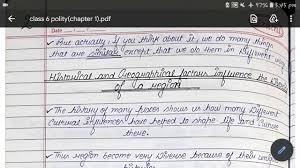 97% 5:45 pm
class 6 polity(chapter 1).pdf
Date
But actually, if you think about it, we do many things
that are similar except that we do them in different way
Historical and Geographical factors influence the
of a region
The history of many places shows us how many different
cultural influences have helped to shape life and culture
there.
Thus region become very diverse because of their